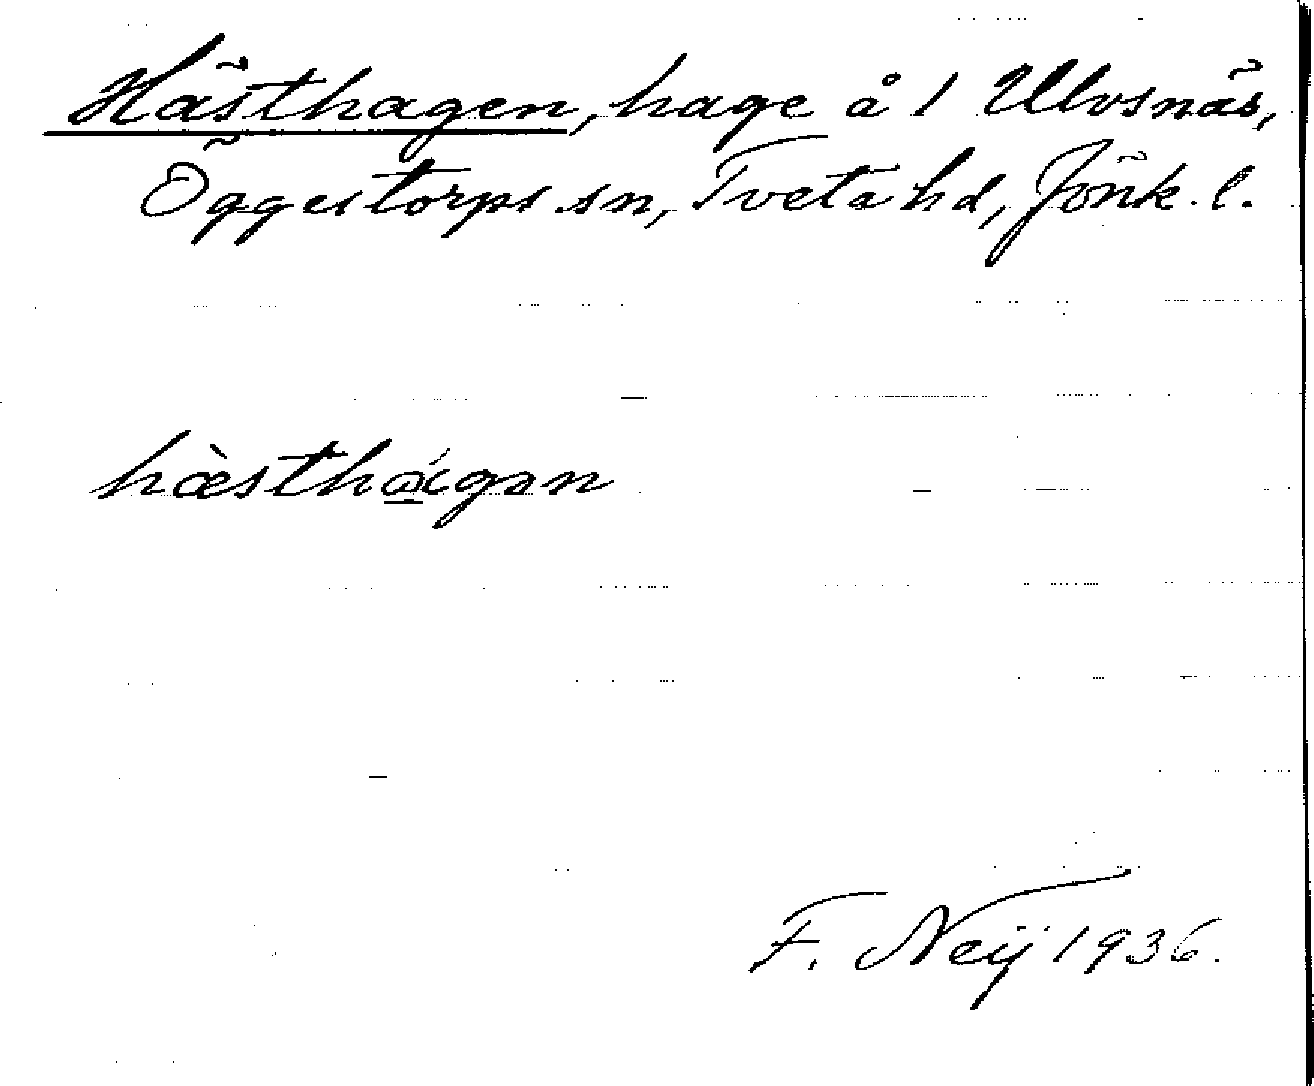 Hästhagen, hage å 1 Ulvsnäs,
Öggestorps sn, Tveta hd, Jönk. l.
hæ̀sthɑ́gən
F. Neij 1936.